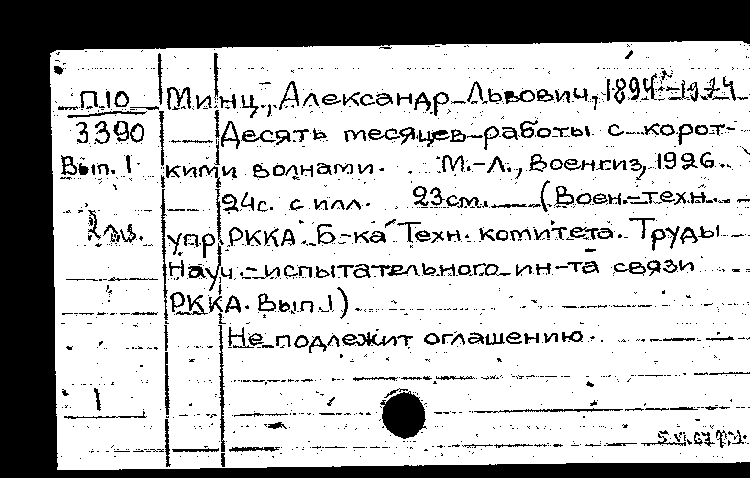 П10 Минц, Александр Львович, 1894-1974
3390 Десять месяцев работы с корот-
Вып. 1 кими волнами. М.-Л., Военгиз, 1926.
24с. с илл. 23см. (Воен.-техн.
2 экз. упр РККА. Б-ка Техн. комитета. Труды
Науч.-испытательного ин-та связи
РККА. Вып.1)
Не подлежит оглашению.
1